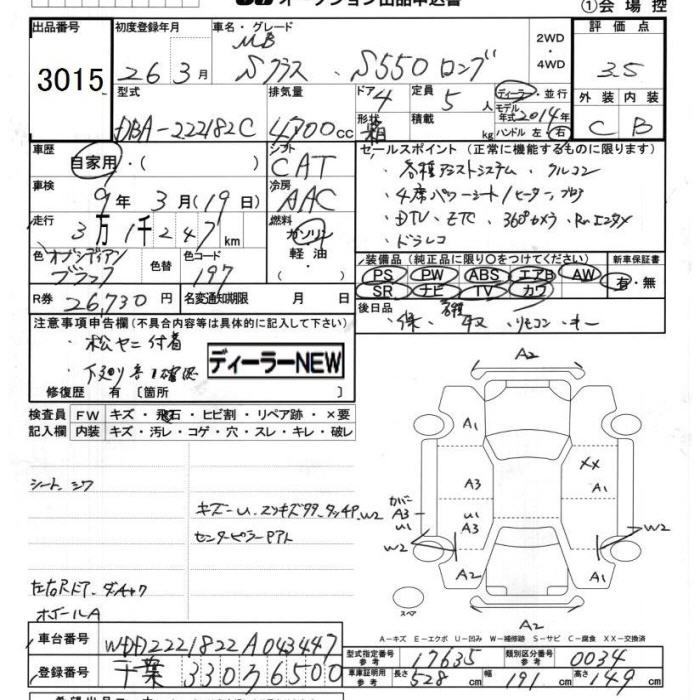 オークション出品申込書
①会場控
出品番号 3015
初度登録年月 26年3月
車名・グレード MB Sクラス S550 ロング
2WD・4WD
評価点 3.5
型式 DBA-222182C
排気量 4700cc
ドア 4
形状 箱
定員 5人
積載 kg
ディーラー・並行
モデル年式 2014年
ハンドル 左・右
外装 C 内装 B
車歴 自家用・( )
シフト CAT
車検 9年3月(19日)
冷房 AAC
走行 3万1千247km
燃料 ガソリン・軽油・
色 オブシディアンブラック
色替
色コード 197
R券 26,730円
名変通知期限 月 日
セールスポイント(正常に機能するものに限ります)
・各種アシストシステム・クルコン
・4席パワーシート/ヒーター、
・DTV・ETC・360°カメラ・Rrエンタメ
・ドラレコ
装備品(純正品に限り○をつけてください)
新車保証書
PS PW ABS エアB AW
SR ナビ TV カワ
有・無
後日品 ・保・ 取 ・リモコン・キー
注意事項申告欄(不具合内容等は具体的に記入して下さい)
・松ヤニ付着
・下廻り 確認
ディーラーNEW
修復歴 有 〔箇所 〕
検査員記入欄
FW キズ・飛石・ヒビ割・リペア跡・×要
内装 キズ・汚レ・コゲ・穴・スレ・キレ・破レ
シート、シワ
キズー U、エンキズタタ、タッチP、W2
センターピラーPアト
左右Rドア、ダッチャク
ホイールA
A2
A1
XX
A3
A1
カバーA3 U1
U1 A3
W2
W2
A2
A2
スペア
A-キズ E-エクボ U-凹み W-補修跡 S-サビ C-腐食 XX-交換済
車台番号 WDD2221822A043447
登録番号 千葉 330 ろ 6500
型式指定番号 参考 17635
類別区分番号 参考 0034
車庫証明用 参考 長さ 528cm 幅 191cm 高さ 149cm